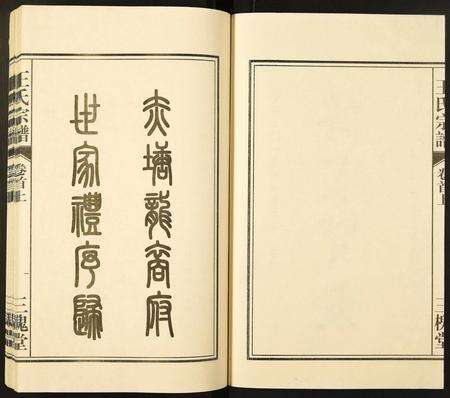 王氏宗譜 卷首上 三槐堂
赤塘龍府
世家禮序歸
王氏宗譜 卷首上 一 三槐堂